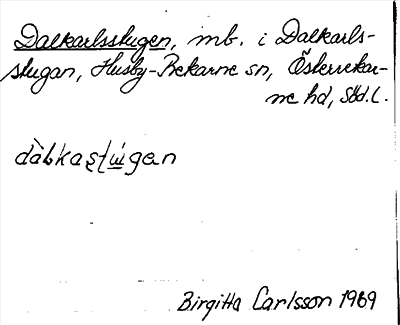 Dalkarlsstugen, mb. i Dalkarls-
stugan, Husby-Rekarne sn, Österrekar-
ne hd, Söd.l.
Birgitta Carlsson 1969